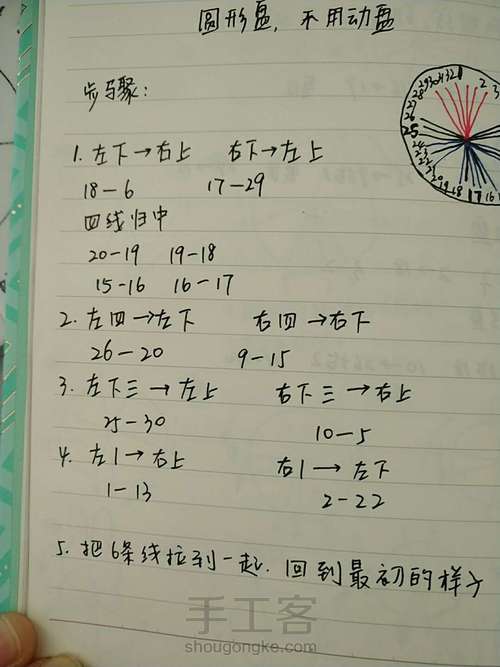 圆形盘，不用动盘
步骤：
1. 左下→右上 右下→左上
18-6 17-29
四线归中
20-19 19-18
15-16 16-17
2. 左四→左下 右四→右下
26-20 9-15
3. 左下三→左上 右下三→右上
25-30 10-5
4. 左1→右上 右1→左下
1-13 2-22
5. 把6条线拉到一起. 回到最初的样子
29 30 31 32 1 2 3
28
27
26
25
24
23
22
21
20 19 18 17 16
手工客
shougongke.com